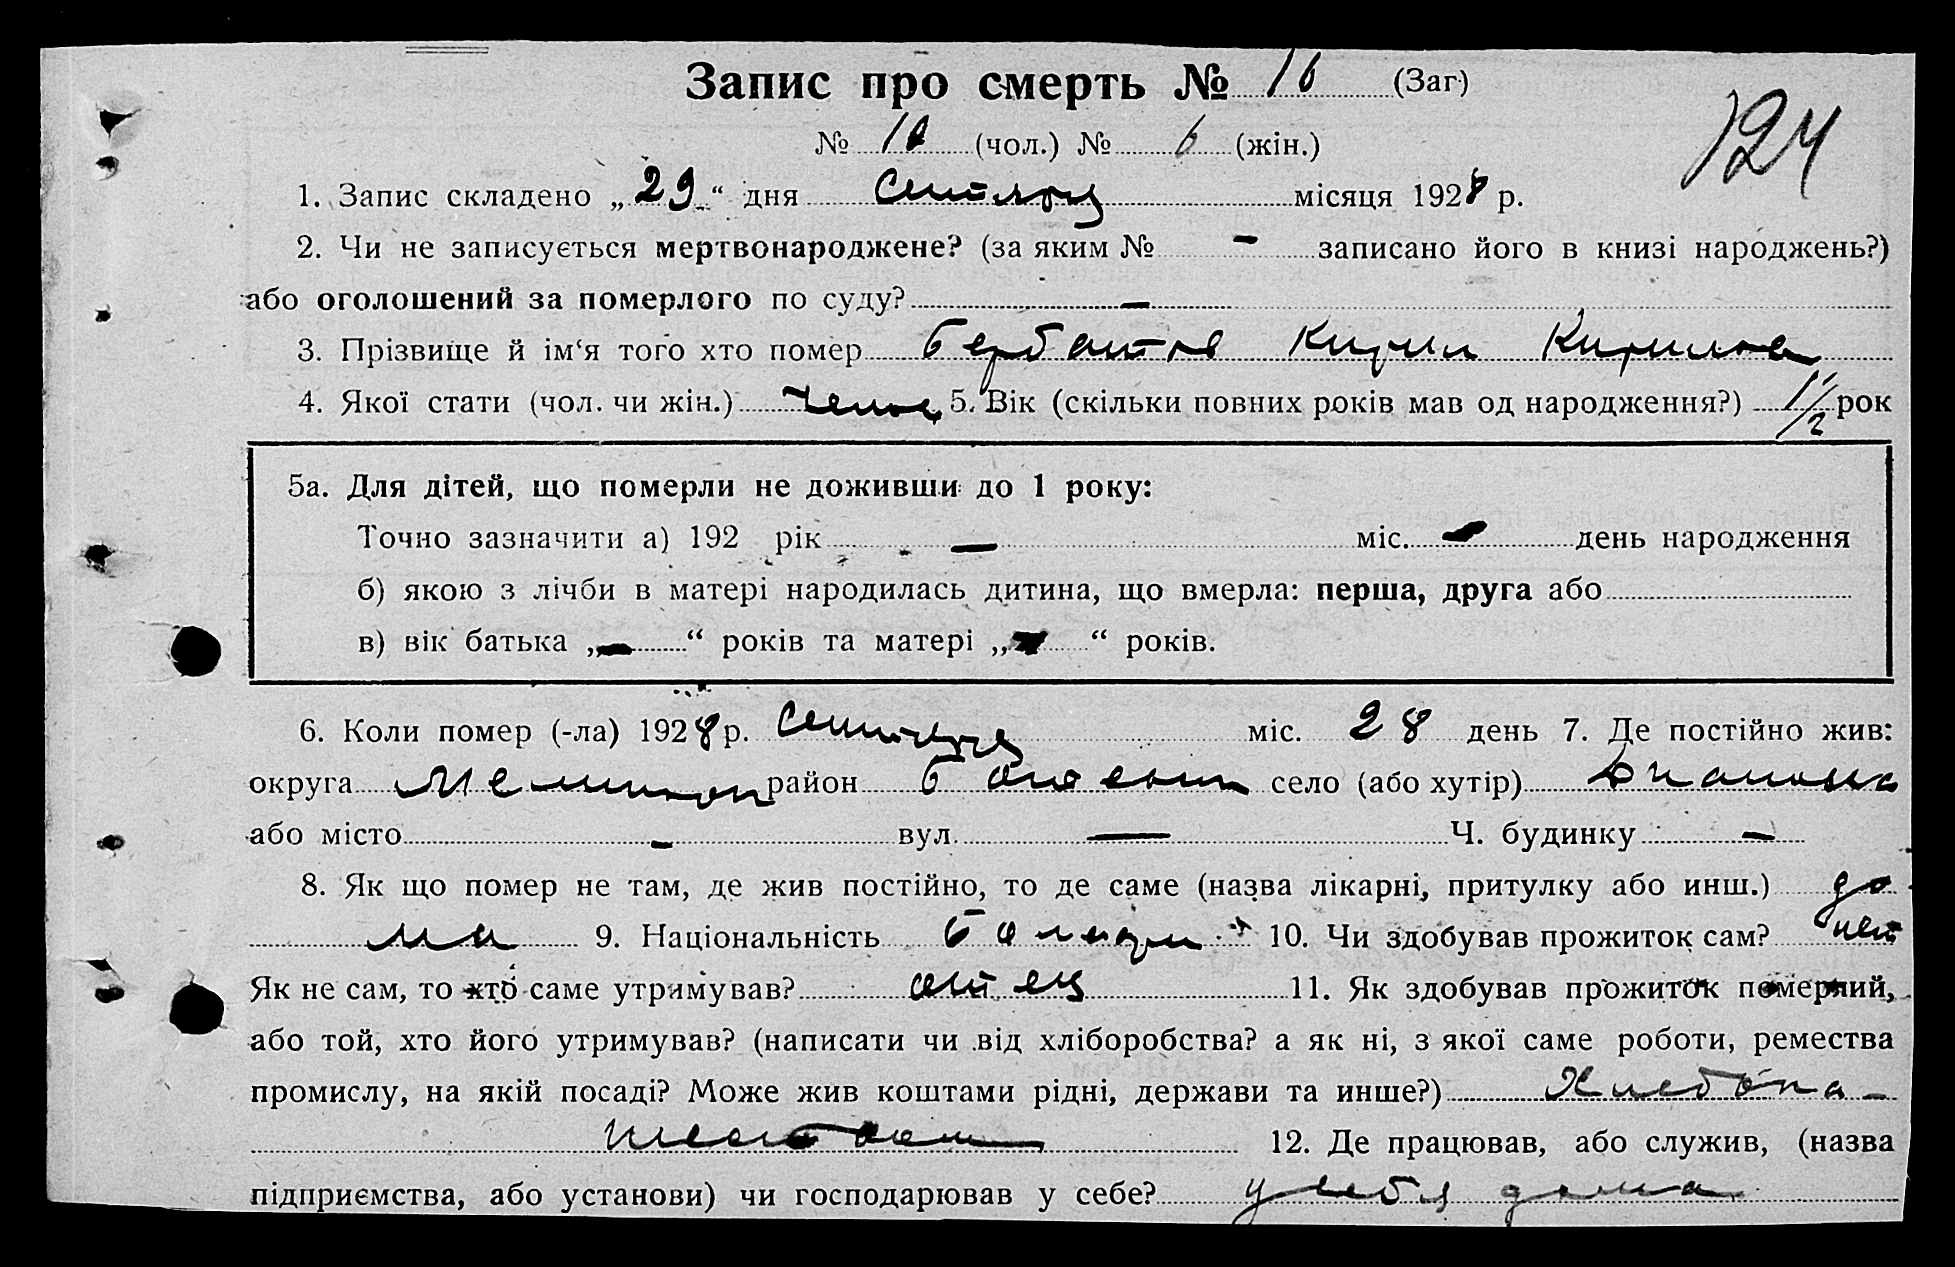 Запис про смерть № 16 (Заг)
124
№ 10 (чол.) № 6 (жін.)
1. Запис складено „29“ дня Сентября місяця 1928 р.
2. Чи не записується мертвонароджене? (за яким № – записано його в книзі народжень?)
або оголошений за померлого по суду? –
3. Прізвище й ім‘я того хто помер Кирил
4. Якої стати (чол. чи жін.) 5. Вік (скільки повних років мав од народження?) 1 1/2 рок
5а. Для дітей, що померли не доживши до 1 року:
Точно зазначити а) 192 рік – міс. – день народження
б) якою з лічби в матері народилась дитина, що вмерла: перша, друга або
в) вік батька „–“ років та матері „–“ років.
6. Коли помер (-ла) 1928 р. Сентября міс. 28 день 7. Де постійно жив:
округа Мелитоп район село (або хутір)
або місто – вул. – Ч. будинку –
8. Як що помер не там, де жив постійно, то де саме (назва лікарні, притулку або инш.) до
ма 9. Національність Болгари 10. Чи здобував прожиток сам? нет
Як не сам, то хто саме утримував? отец 11. Як здобував прожиток померлий,
або той, хто його утримував? (написати чи від хліборобства? а як ні, з якої саме роботи, ремества
промислу, на якій посаді? Може жив коштами рідні, держави та инше?) Хлебопа-
шеством 12. Де працював, або служив, (назва
підприємства, або установи) чи господарював у себе? у себя дома